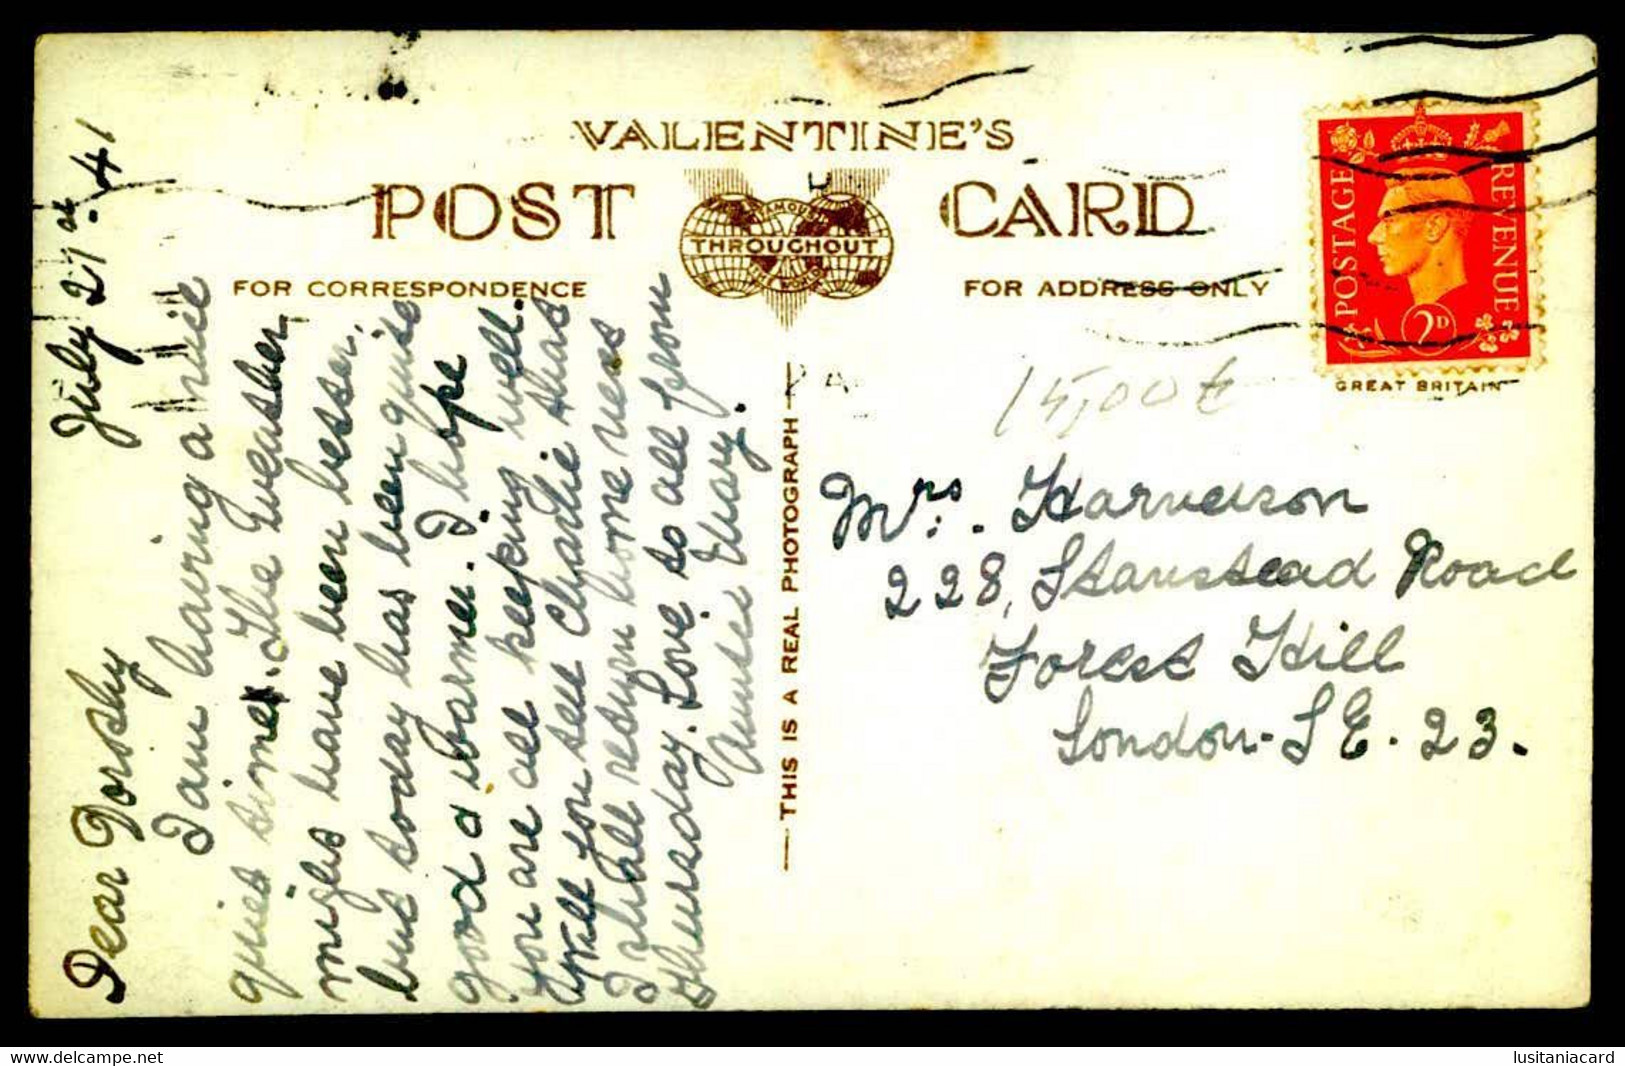 VALENTINE'S
POST CARD
FAMOUS
THROUGHOUT
THE WORLD
FOR CORRESPONDENCE
FOR ADDRESS ONLY
POSTAGE
REVENUE
2D
GREAT BRITAIN
THIS IS A REAL PHOTOGRAPH
July 27th. 41
Dear Dorothy
I am having a nice
quiet time. The weather
might have been better,
but today has been quite
good & warmer. I hope
you are all keeping well.
Will you tell Charlie that
I shall return home next
Thursday. Love to all from
Auntie Mary.
15,00 €
Mrs. Harverson
228, Stanstead Road
Forest Hill
London. S E. 23.
https://www.delcampe.net
lusitaniacard